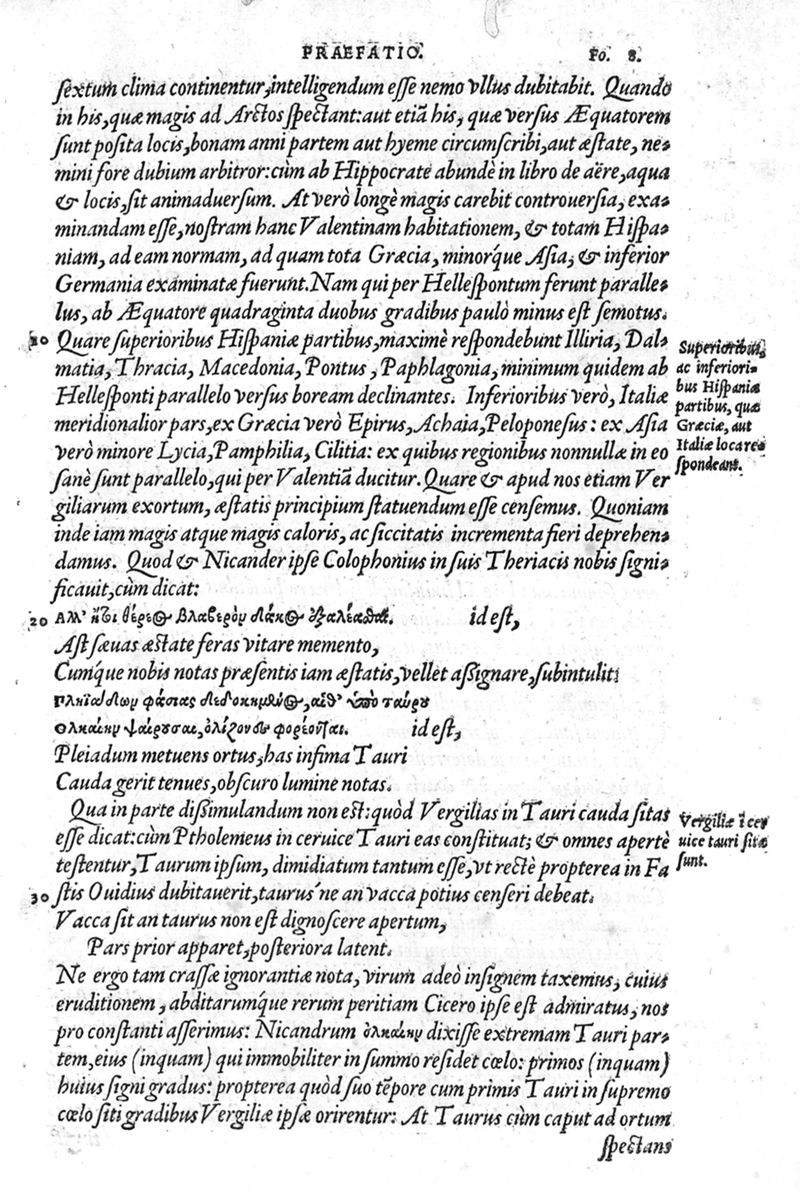 PRAEFATIO. Fo. 8.
sextum clima continentur, intelligendum esse nemo vllus dubitabit. Quando
in his, quæ magis ad Arctos spectant: aut etiā his, quæ versus Æquatorem
sunt posita locis, bonam anni partem aut hyeme circumscribi, aut æstate, ne-
mini fore dubium arbitror: cùm ab Hippocrate abundè in libro de aëre, aqua
& locis, sit animaduersum. At verò longè magis carebit controuersia, exa-
minandam esse, nostram hanc Valentinam habitationem, & totam Hispa-
niam, ad eam normam, ad quam tota Græcia, minorq́ue Asia, & inferior
Germania examinatæ fuerunt. Nam qui per Hellespontum ferunt paralle-
lus, ab Æquatore quadraginta duobus gradibus paulò minus est semotus.
Quare superioribus Hispaniæ partibus, maximè respondebunt Illiria, Dal-
matia, Thracia, Macedonia, Pontus, Paphlagonia, minimum quidem ab
Hellesponti parallelo versus boream declinantes. Inferioribus verò, Italiæ
meridionalior pars, ex Græcia verò Epirus, Achaia, Peloponesus: ex Asia
verò minore Lycia, Pamphilia, Cilitia: ex quibus regionibus nonnullæ in eo
sanè sunt parallelo, qui per Valentiā ducitur. Quare & apud nos etiam Ver
giliarum exortum, æstatis principium statuendum esse censemus. Quoniam
inde iam magis atque magis caloris, ac siccitatis incrementa fieri deprehen-
damus. Quod & Nicander ipse Colophonius in suis Theriacis nobis signi-
ficauit, cùm dicat:
20 θέρε〈ος〉 βλαβερὸν δάκ〈ος〉 id est,
Ast sæuas æstate feras vitare memento,
Cumq́ue nobis notas præsentis iam æstatis, vellet assignare, subintulit:
Πληϊάδων φάσιας ὑπὸ ταύρου
Ὁλκαίην ψαίρουσαι, ὀλίζονες φορέονται. id est,
Pleiadum metuens ortus, has infima Tauri
Cauda gerit tenues, obscuro lumine notas.
Qua in parte dissimulandum non est: quòd Vergilias in Tauri cauda sitas
esse dicat: cùm Ptholemeus in ceruice Tauri eas constituat; & omnes apertè
testentur, Taurum ipsum, dimidiatum tantum esse, vt rectè propterea in Fa
30 stis Ouidius dubitauerit, taurus'ne an vacca potius censeri debeat.
Vacca sit an taurus non est dignoscere apertum,
Pars prior apparet, posteriora latent.
Ne ergo tam crassæ ignorantiæ nota, virum adeò insignem taxemus, cuius
eruditionem, abditarumq́ue rerum peritiam Cicero ipse est admiratus, nos
pro constanti asserimus: Nicandrum ὁλκαίην dixisse extremam Tauri par-
tem, eius (inquam) qui immobiliter in summo residet cœlo: primos (inquam)
huius signi gradus: propterea quòd suo tēpore cum primis Tauri in supremo
cœlo siti gradibus Vergiliæ ipsæ orirentur: At Taurus cùm caput ad ortum
spectans
Superioribus,
ac inferiori-
bus Hispaniæ
partibus, quæ
Græciæ, aut
Italiæ loca re-
spondeant.
Vergiliæ ī cer
uice tauri sitæ
sunt.